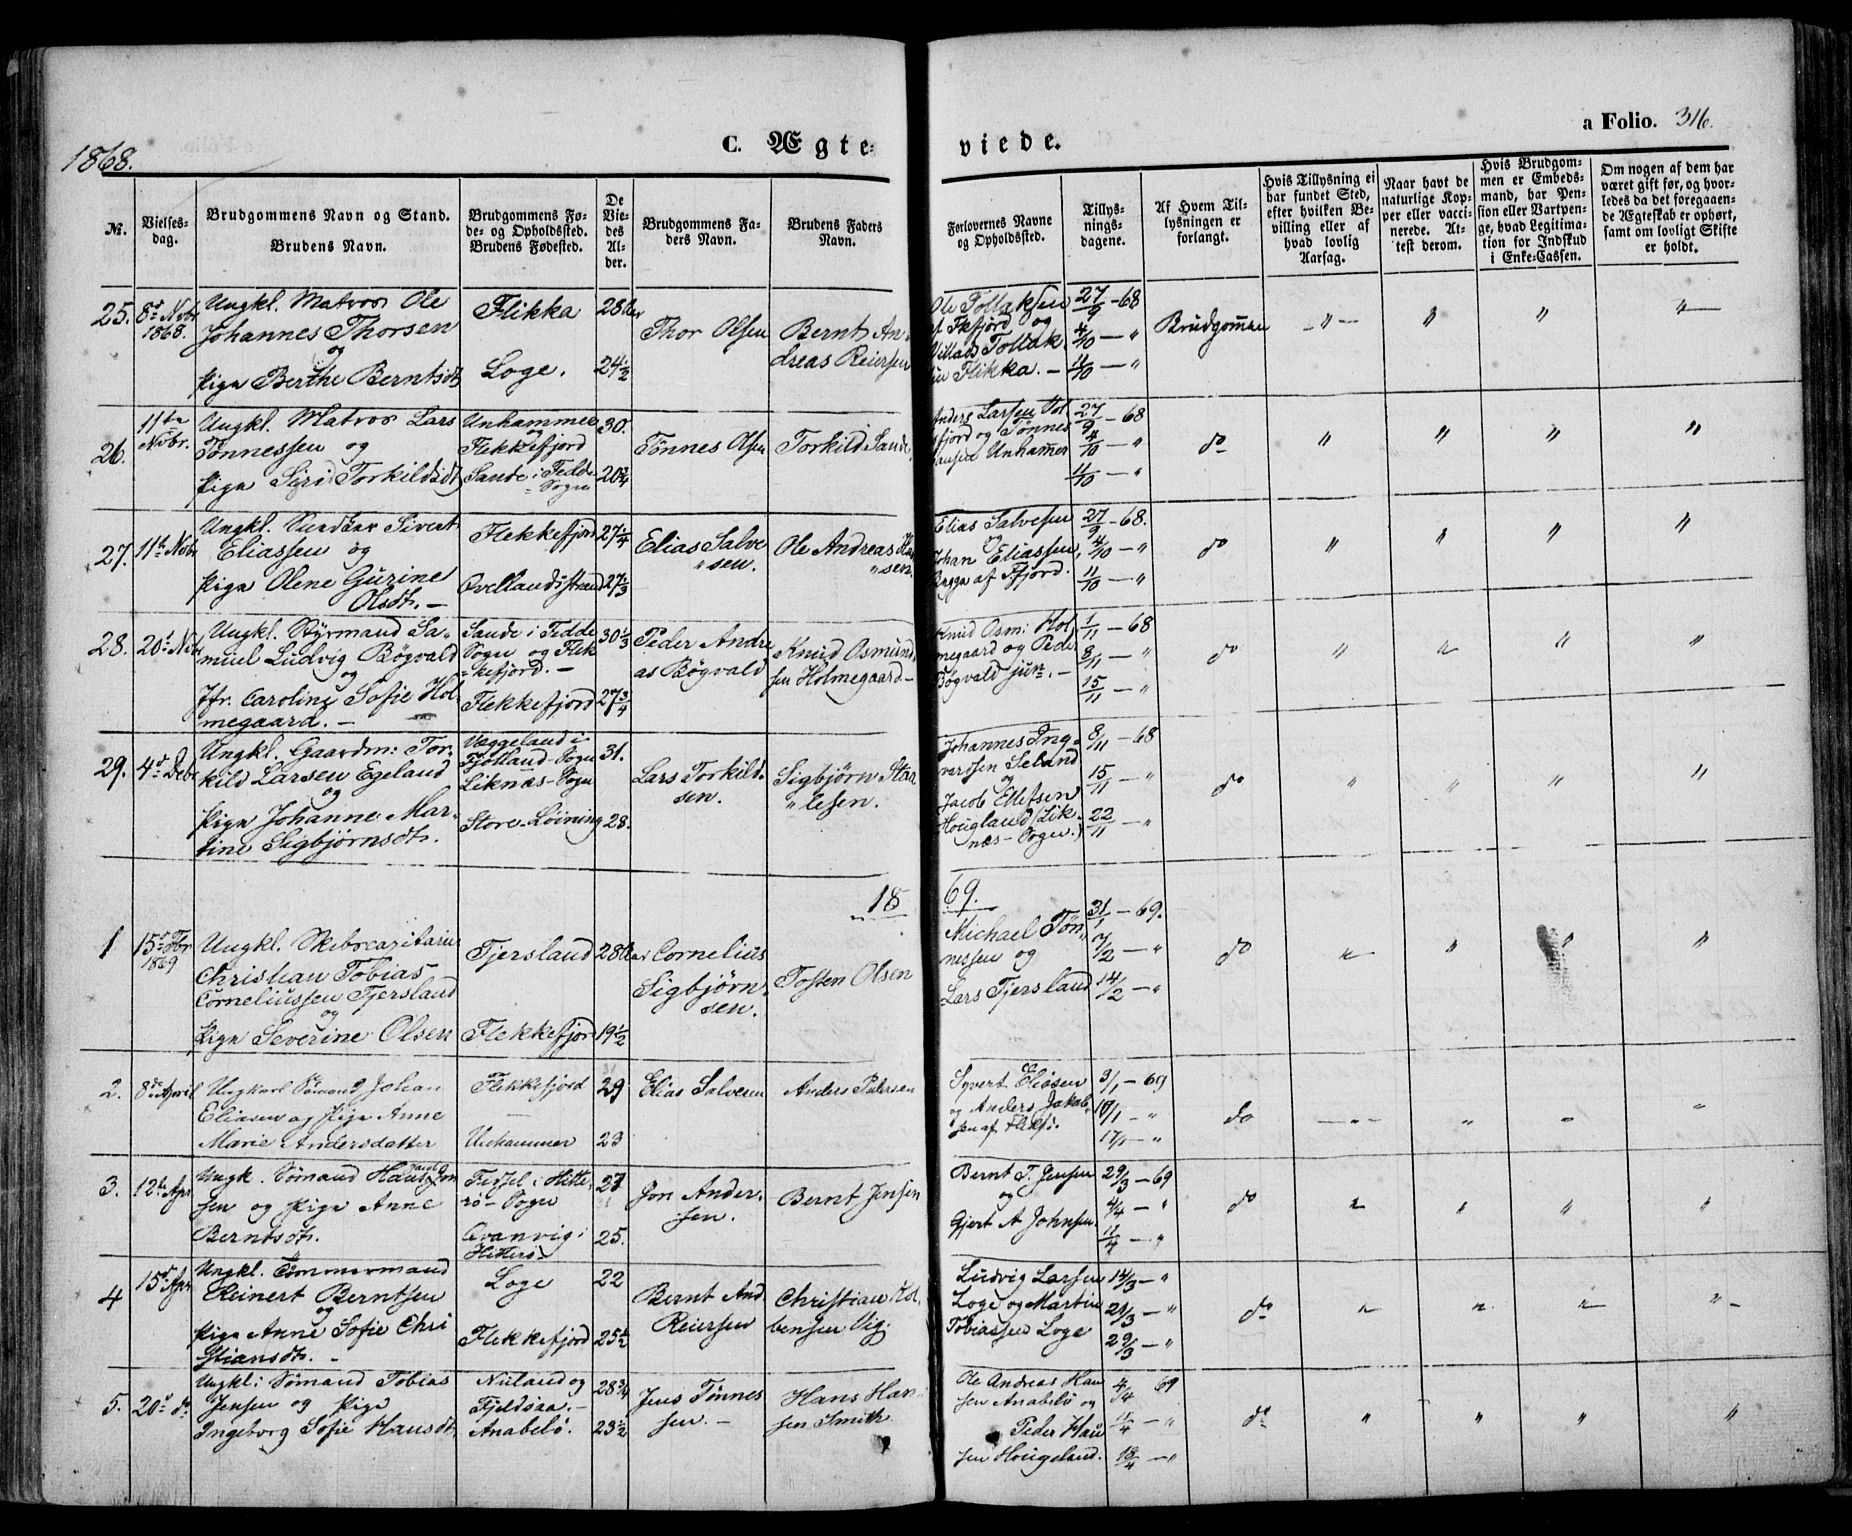 1868.
C. Ægte- viede.
a Folio. 316.
№.
Vielses-
dag.
Brudgommens Navn og Stand.
Brudens Navn.
Brudgommens Fø-
de- og Opholdssted.
Brudens Fødested.
De
Vie-
des
Al-
der.
Brudgommens Fa-
ders Navn.
Brudens Faders
Navn.
Forlovernes Navne
og Opholdssted.
Tillys-
nings-
dagene.
Af Hvem Til-
lysningen er
forlangt.
Hvis Tillysning ei
har fundet Sted,
efter hvilken Be-
villing eller af
hvad lovlig
Aarsag.
Naar havt de
naturlige Kop-
per eller vacci-
nerede. At-
test derom.
Hvis Brudgom-
men er Embeds-
mand, har Pen-
sion eller Vartpen-
ge, hvad Legitima-
tion for Indskud
i Enke-Cassen.
Om nogen af dem har
været gift før, og hvor-
ledes da det foregaaen-
de Ægteskab er ophørt,
samt om lovligt Skifte
er holdt.
25.
8de Nobr
1868.
Ungkl. Matros Ole
Johannes Thorsen
og
Pige Berthe Berntsdt
Flikka
Loge.
28
24 1/2
Thor Olsen
Bernt An
dreas Reiersen
Ole Tollaksen
af Fkfjord og
Villads Tollak
sen Flikka. -
27/9 - 68
4/10 - "
11/10 - "
Brudgommen
26.
11te
Nobr.
Ungkl. Matros Lars
Tønnessen og
Pige Siri Torkildsdt
Unhammer
og
Flekkefjord
Sande i Fedde
Sogn
30.
20 3/4
Tønnes Olsen
Torkild Sande
Anders Larsen
fjord og Tønnes
Hansen Unhamer
27/9 - 68
4/10 - "
11/10 - "
do
27.
11te Nobr
Ungkl. Snedker Sivert
Eliassen og
Pige Olene Gurine
Olsdt. -
Flekkefjord
Qvellandsstrand
27 1/4
27 1/3
Elias Salve
"sen.
Ole Andreas
"sen.
Elias Salvesen
og
Johan Eliassen,
Begge af Ffjord.
27/9 - 68.
4/10 - "
11/10 - "
do
28.
20de Nobr
Ungkl. Styrmand Sa-
muel Ludvig Bøgvald
og
Jfr. Caroline Sofie Hol
megaard. -
Sande i Fedde
Sogn og Flek
kefjord. -
Flekkefjord
30 1/3
27 3/4
Peder Andre
as Bøgvald
Knud Osmund
sen Holmegaard -
Knud Osm: Hol
megaard og Peder
Bøgvald jun. -
1/11 - 68
8/11 - "
15/11 - "
do
29.
4de Debr
Ungkl. Gaardm: Tor-
kild Larsen Egeland
og
Pige Johanne Mar-
tine Sigbjørnsdt.
Væggeland i
Fjotland Sogn
Liknæs-Sogn
Store-Løining
31.
28.
Lars Torkild
sen.
Sigbjørn Staa
"lesen.
Johannes Ing-
vardsen Seland
og
Jacob Ellefsen
Hougland (Lik-
næs-Sogn.)
8/11 - 68
15/11 - "
22/11 - "
do
18 69.
1
15de Fbr
1869
Ungkl. Skibscaritarius
Christian Tobias
Corneliussen Tjersland
og
Pige Severine Olsen
Tjersland
Flekkefjord
28
19 1/2
Cornelius
Sigbjørn
sen.
Tosten Olsen
Michael Tøn
nessen og
Lars Tjersland
31/1 - 69.
7/2 - "
14/2 - "
do
2.
8de April
Ungkarl Sømand Johan
Eliasen og Pige Anne
Marie Andersdatter
Flekkefjord
Unhammer
29
23
Elias Salvesen
Anders Pedersen
Syvert Eliasen
og Anders Jakob
sen af Flekfj.
3/1 - 69
10/1 - "
17/1 - "
do
3.
12te Apr.
Ungk. Sømand Hans Jon
sen og Pige Anne
Berntsdt.
Fedsel i Hitte
rø-Sogn
Qvanvig i
Hitterø
27
25.
Jon Ander-
sen.
Bernt Jensen
Bernt T. Jensen
og
Gjert A Johnsen
29/3 - 69
4/4 - "
11/4 - "
do
4
15de Apr
Ungkl. Tømmermand
Reinert Berntsen
og
Pige Anne Sofie Chri
stiansdt. -
Loge
Flekkefjord
22
25 1/2
Bernt And
Reiersen
Christian Hol
bensen Vig.
Ludvig Larsen
Loge og Martin
Tobiassen Loge
14/3 - "
21/3 - "
29/3 - "
do
5.
20de do
Ungkl: Sømand Tobias
Jensen og Pige
Ingeborg Sofie Hansdt.
Nuland og
Fjeldsaa. -
Anabelø.
28 3/4
23 1/2
Jens Tønnes
sen. -
Hans Han
sen Smith
Ole Andreas Han
sen Anabelø og
Peder Han
sen Hougeland.
4/4 69
11/4 - "
18/4 - "
do